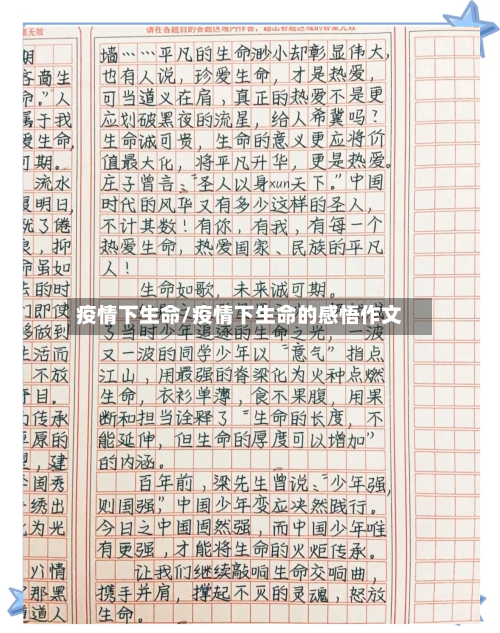 请在各题目的答题区域内作答，超出答题区域的答案无效
案无效
期
各啬生
命。”人
属于我
爱生命，
可期。
流水
夏明日，
就了倦
良，抑
命虽如
去的时
们即使
够做到
生活而
不放
于目。
力传承
巨原的
里，建
国秀
绣出
为光
情
那黑
道道人
墙……平凡的生命渺小却彰显伟大，
也有人说，珍爱生命，才是热爱，
可当道义在肩，真正的热爱不是更
应划破黑夜的流星，给人希冀吗？
生命诚可贵，生命的意义更应将价
值最大化，将平凡升华，更是热爱。
庄子曾言：“圣人以身xun天下。”中国
时代的风华又有多少这样的圣人，
不计其数！有你，有我，有每一个
热爱生命，热爱国家、民族的平凡
人！
生命如歌，未来诚可期。
疫情下生命/疫情下生命的感悟作文
了当时少年追逐的生命之光，一波
又一波的同学少年以“意气”指点
江山，用最强的脊梁化为火种点燃
生命，衣衫单薄，食不果腹，用果
断和担当诠释了“生命的长度，不
能延伸，但生命的厚度可以增加”
的内涵。
百年前，梁先生曾说：“少年强，
则国强，”中国少年变应决然践行。
今日之中国固然强，而中国少年唯
有更强，才能将生命的火炬传承。
让我们继续敲响生命交响曲，
携手并肩，撑起不灭的灵魂，怒放
生命。